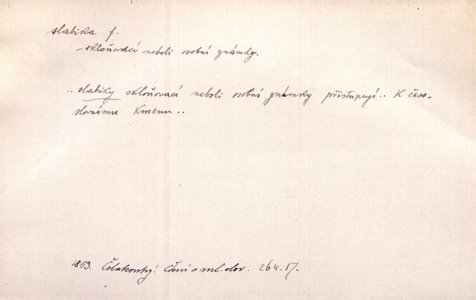 slabika f.
– skloňovací neboli osobní známky.
.. slabiky skloňovací neboli osobní známky přistupují .. k časo-
slovnímu kmenu ..
1853. Čelakovský Čtení o ml. slov. 264. 17.